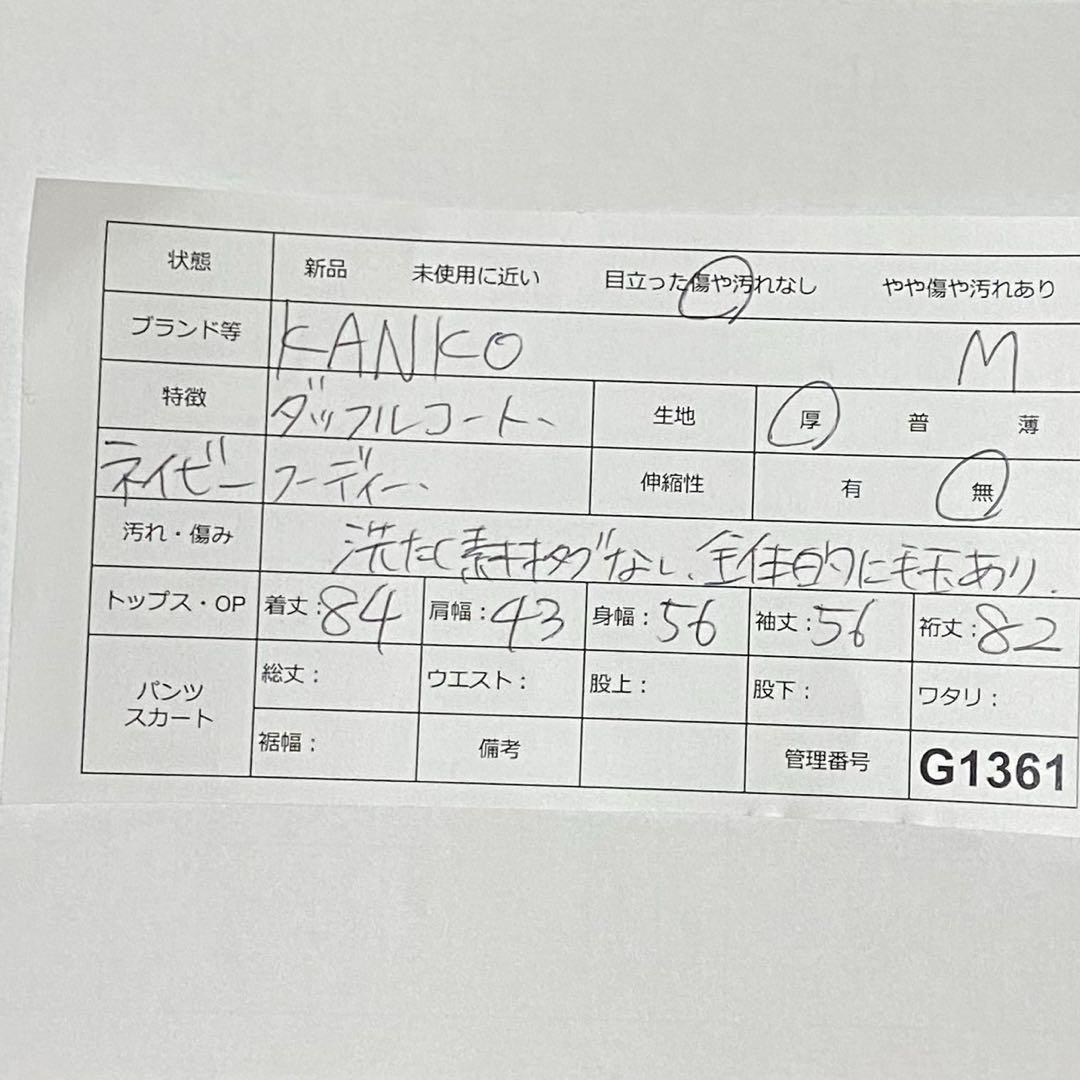 状態 新品 未使用に近い 目立った傷や汚れなし やや傷や汚れあり
ブランド等 KANKO M
特徴 ダッフルコート、 生地 厚 普 薄
ネイビー フーディー、 伸縮性 有 無
汚れ・傷み 洗たく素材タグなし、全体的に毛玉あり.
トップス・OP 着丈:84 肩幅:43 身幅:56 袖丈:56 裄丈:82
パンツ スカート 総丈: ウエスト: 股上: 股下: ワタリ:
裾幅: 備考 管理番号 G1361